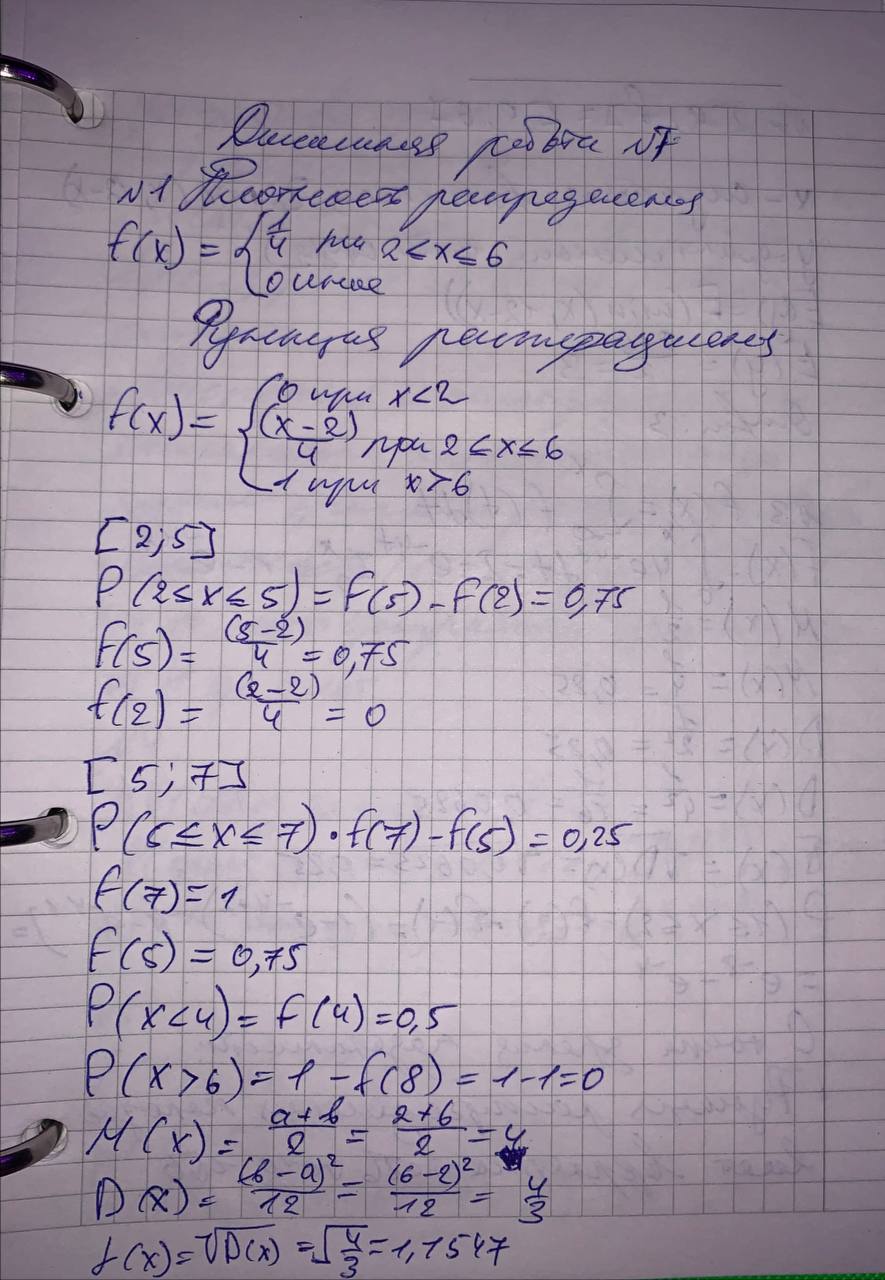 Домашняя работа №7
№1 Плотность распределения
f(x) = { 1/4 при 2 ≤ x ≤ 6
0 иначе
Функция распределения
f(x) = { 0 при x < 2
(x-2)/4 при 2 ≤ x ≤ 6
1 при x > 6
[2;5]
P(2 ≤ x ≤ 5) = f(5) - f(2) = 0,75
f(5) = (5-2)/4 = 0,75
f(2) = (2-2)/4 = 0
[5;7]
P(5 ≤ x ≤ 7) · f(7) - f(5) = 0,25
f(7) = 1
f(5) = 0,75
P(x < 4) = f(4) = 0,5
P(x > 6) = 1 - f(8) = 1-1=0
M(x) = (a+b)/2 = (2+6)/2 = 4
D(x) = (b-a)²/12 = (6-2)²/12 = 4/3
f(x) = √D(x) = √4/3 = 1,1547